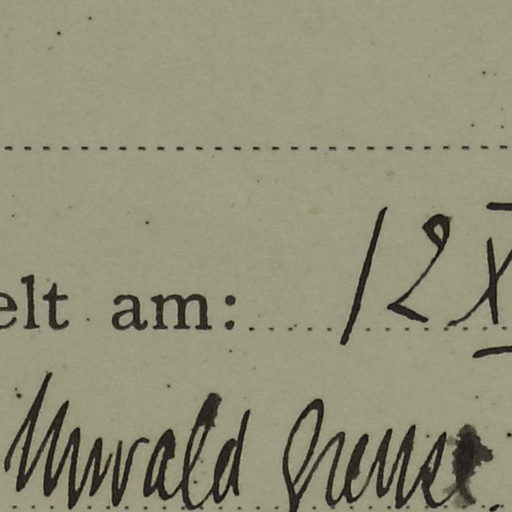 elt am: 12 X
Urwald grense